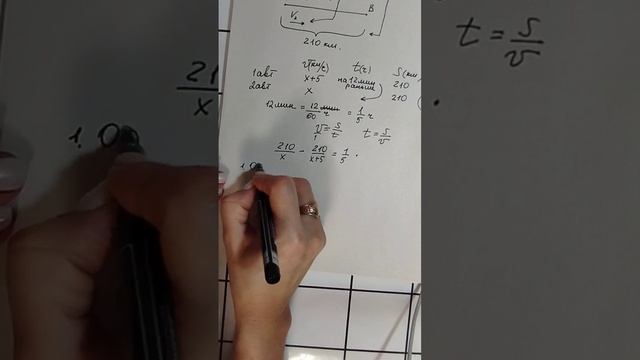 V₂
B
210 км.
v(км/ч) t(ч) S(км)
1авт x+5 на 12мин раньше 210
2авт x 210
12мин = 12мин/60 ч = 1/5 ч
v/1 = S/t t = S/v
210/x - 210/x+5 = 1/5 .
1, 0